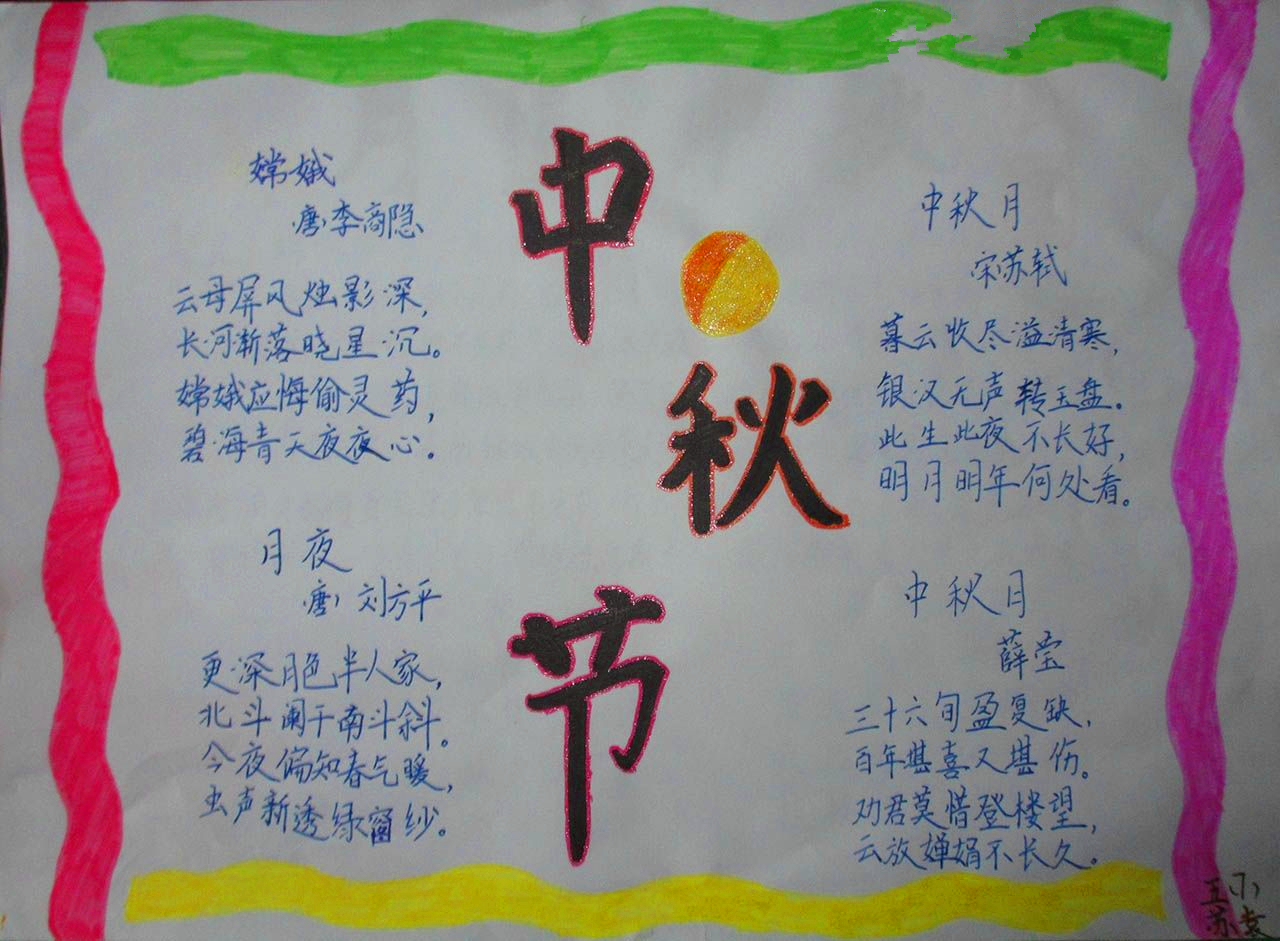 嫦娥
唐 李商隐
云母屏风烛影深，
长河渐落晓星沉。
嫦娥应悔偷灵药，
碧海青天夜夜心。
月夜
唐 刘方平
更深月色半人家，
北斗阑干南斗斜。
今夜偏知春气暖，
虫声新透绿窗纱。
中
秋
节
中秋月
宋 苏轼
暮云收尽溢清寒，
银汉无声转玉盘。
此生此夜不长好，
明月明年何处看。
中秋月
薛莹
三十六旬盈复缺，
百年堪喜又堪伤。
劝君莫惜登楼望，
云放婵娟不长久。